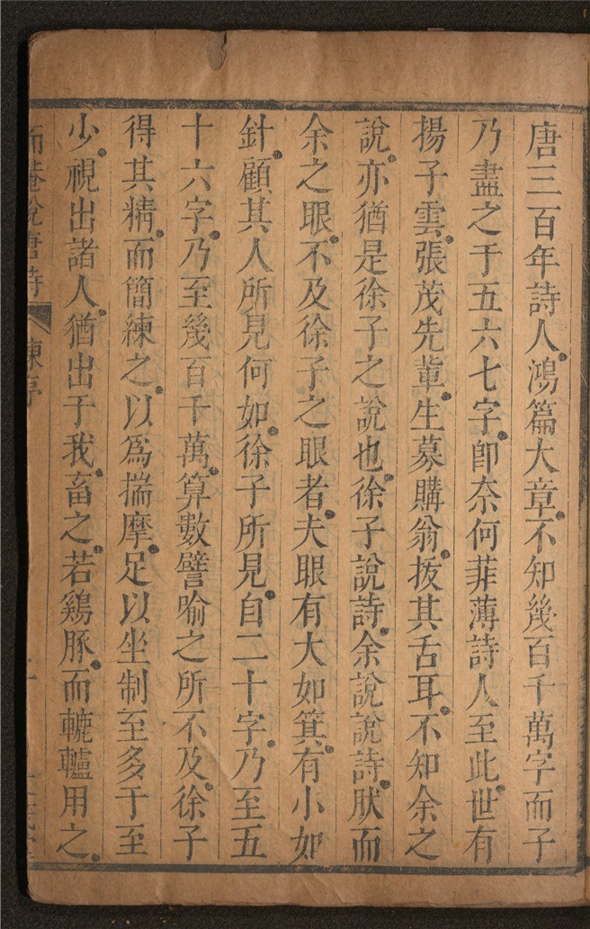 唐三百年詩人鴻篇大章不知幾百千萬字而子
乃盡之于五六七字卽奈何菲薄詩人至此世有
揚子雲張茂先輩生募購翁拔其舌耳不知余之
說亦猶是徐子之說也徐子說詩余說說詩肰而
余之眼不及徐子之眼者夫眼有大如箕有小如
針顧其人所見何如徐子所見自二十字乃至五
十六字乃至幾百千萬算數譬喻之所不及徐子
得其精而簡練之以爲揣摩足以坐制至多于至
少視出諸人猶出于我畜之若鷄豚而轆轤用之
而菴說唐詩